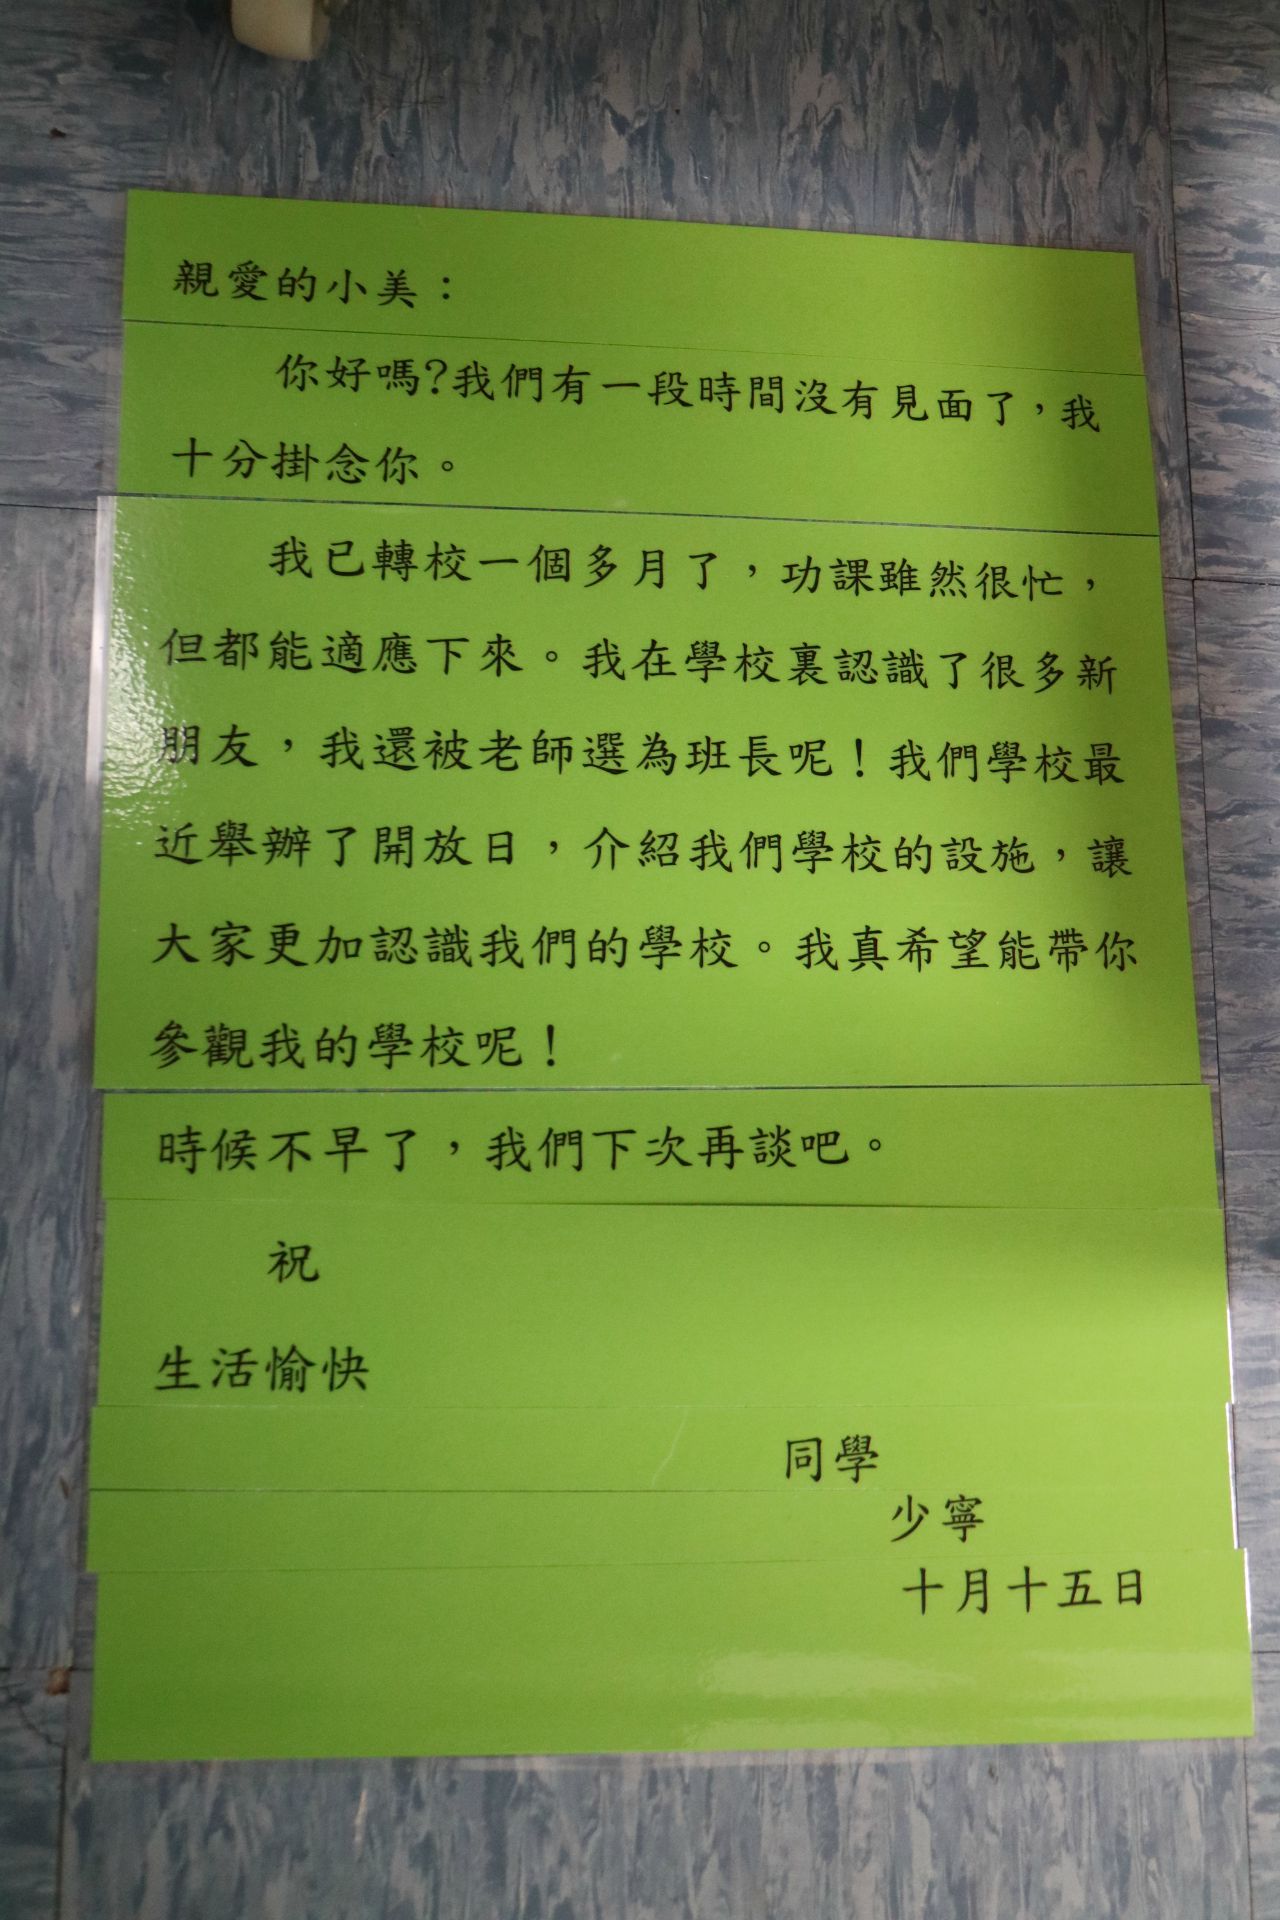 親愛的小美：
你好嗎?我們有一段時間沒有見面了，我
十分掛念你。
我已轉校一個多月了，功課雖然很忙，
但都能適應下來。我在學校裏認識了很多新
朋友，我還被老師選為班長呢！我們學校最
近舉辦了開放日，介紹我們學校的設施，讓
大家更加認識我們的學校。我真希望能帶你
參觀我的學校呢！
時候不早了，我們下次再談吧。
祝
生活愉快
同學
少寧
十月十五日